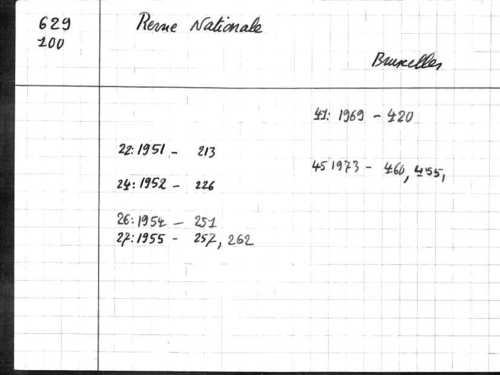 629
100
Revue Nationale
Bruxelles
22: 1951 - 213
24: 1952 - 226
26: 1954 - 251
27: 1955 - 257, 262
41: 1969 - 420
45 1973 - 460, 455,